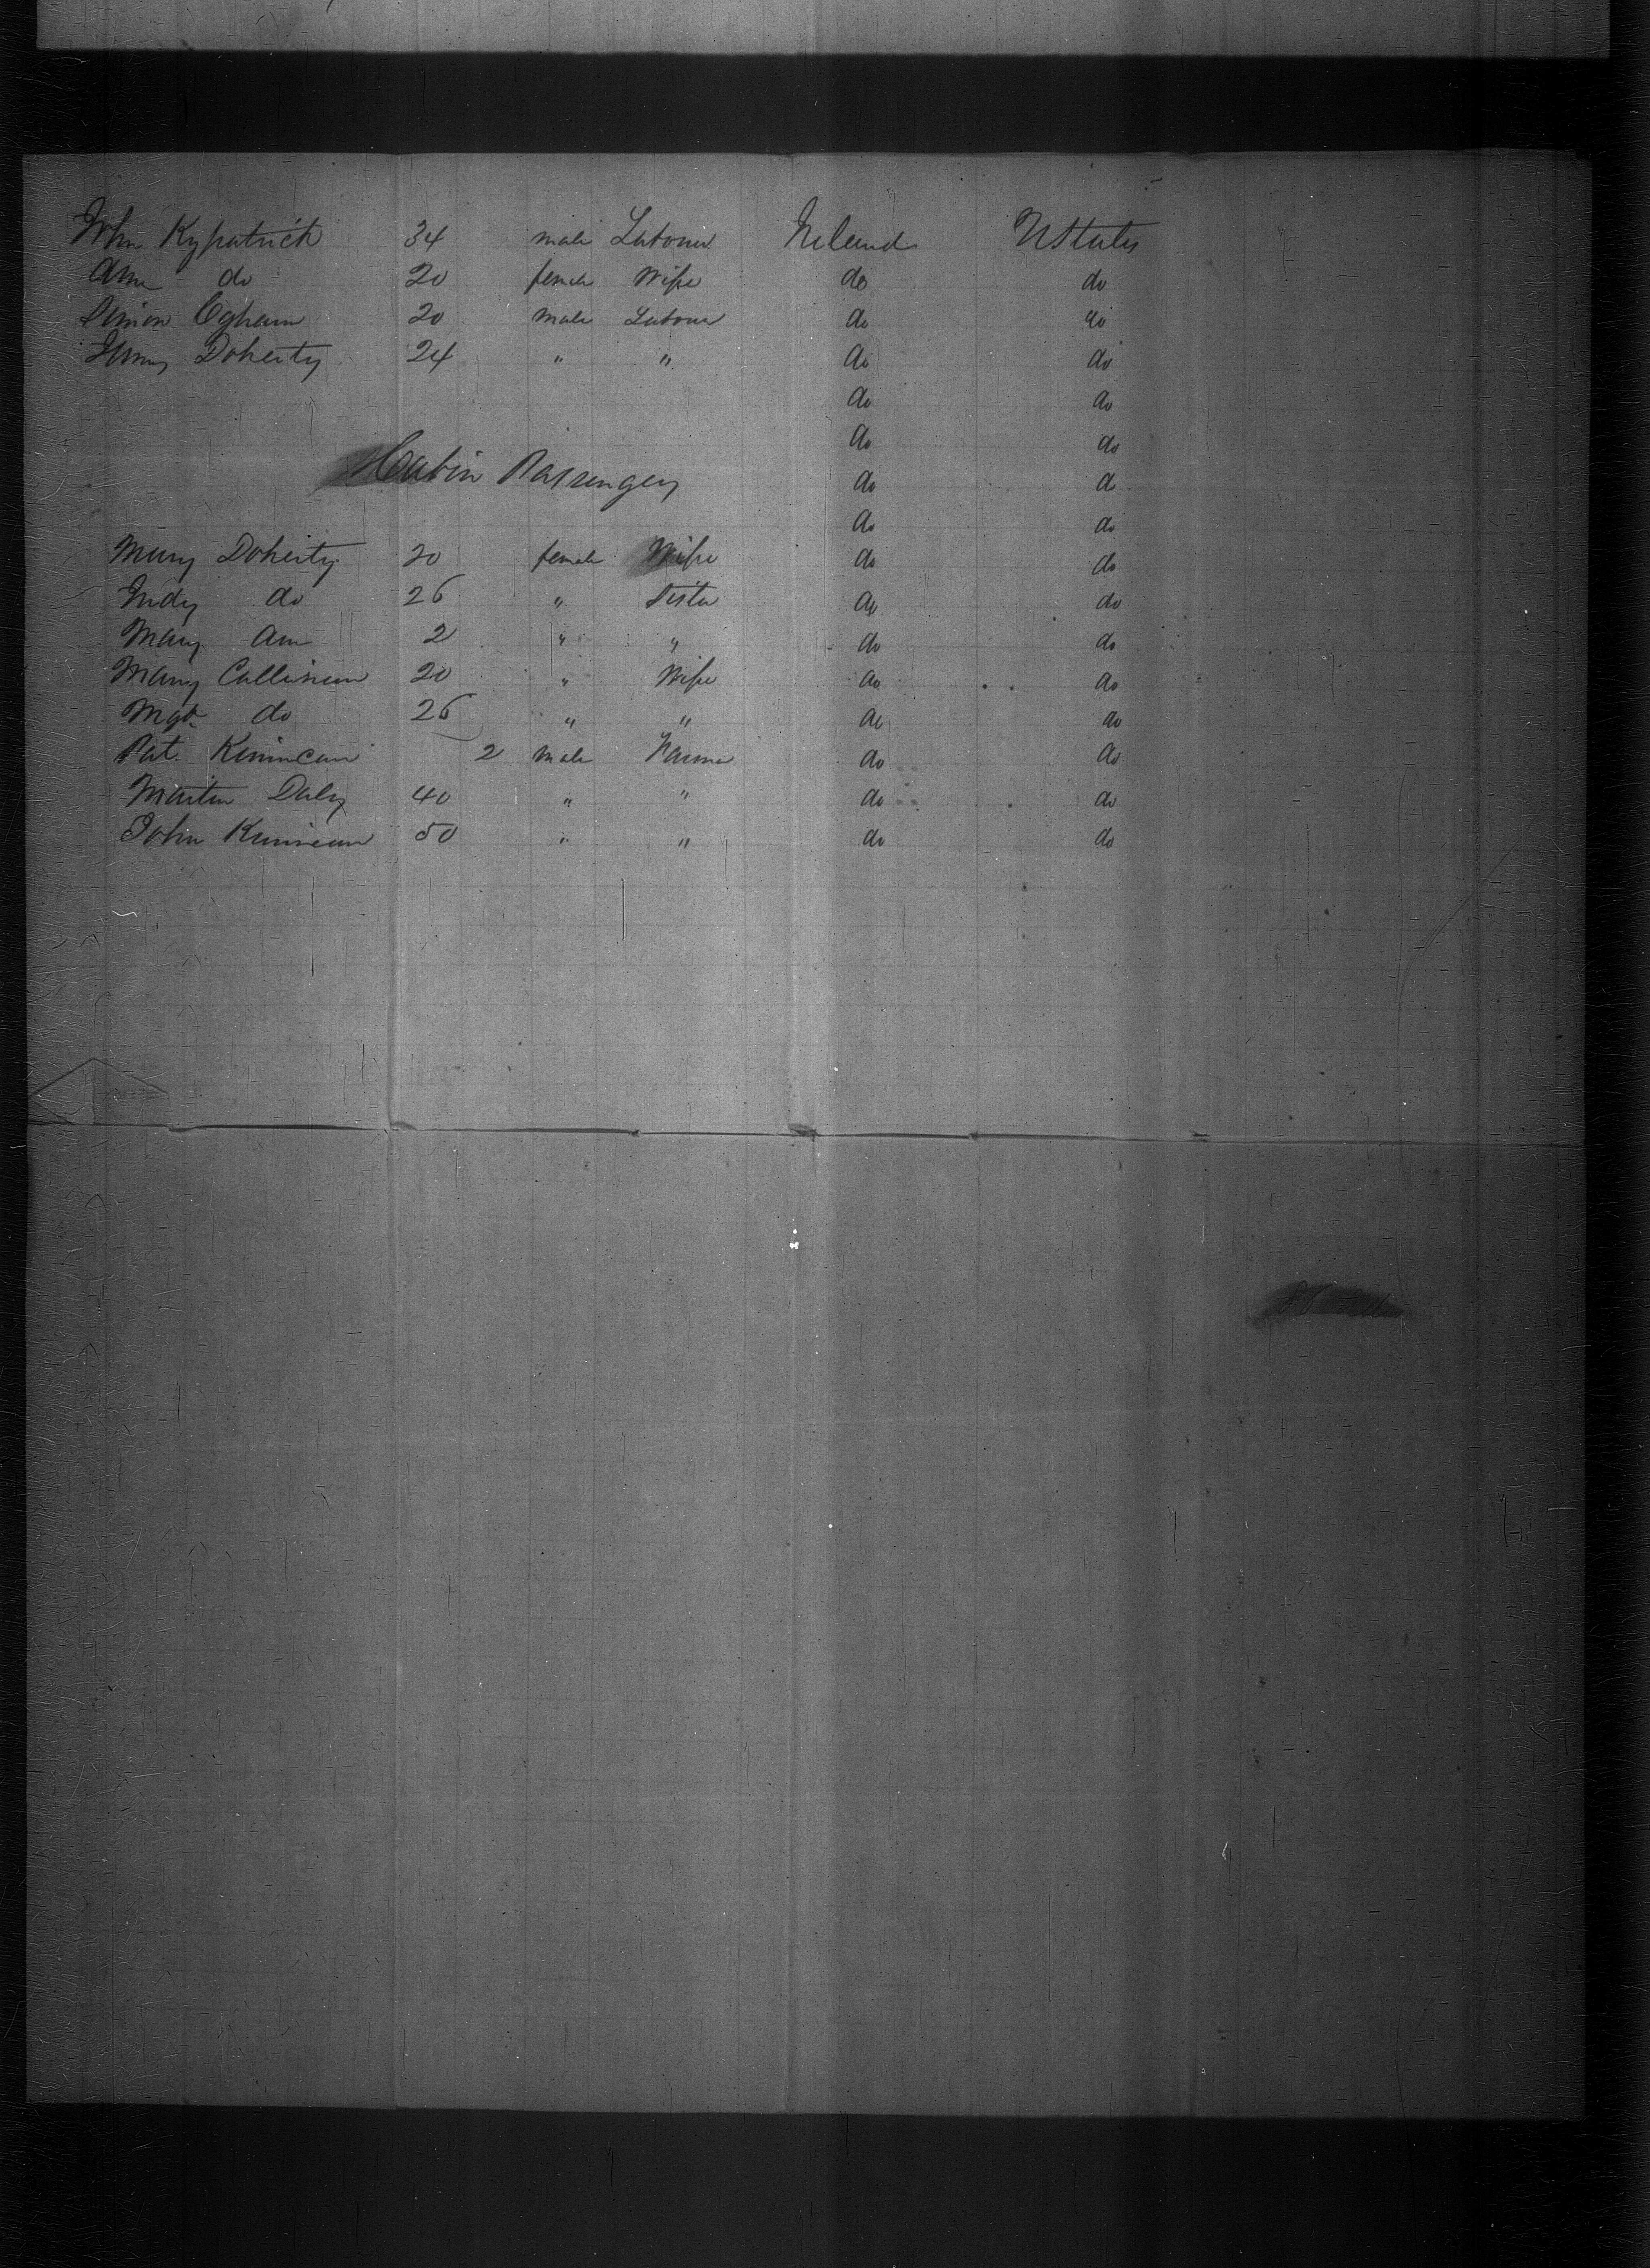 John Kypatrick 34 male Labourer Ireland UStates
Ann do 20 female Wife do do
Simon Egham 20 male Labour do do
Doherty 24 " " do do
do do
do do
Cabin Passengers do d
do do
Mary Doherty 20 female Wife do do
Judy do 26 " Sister do do
Mary Ann 2 " " do do
Mary Callinan 20 " Wife do do
Mgt do 26 " " do do
Pat Kinincan 2 male Farmer do do
Martin Daly 40 " " do do
John Kinincan 50 " " do do